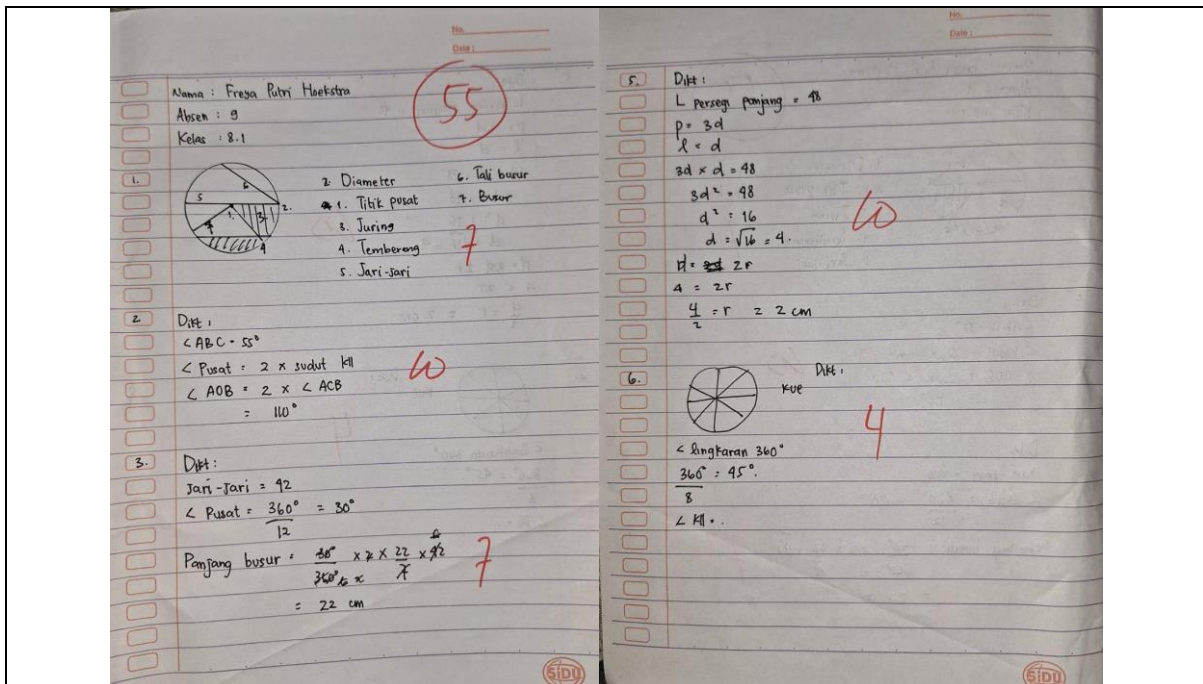 No.
Date :
Nama : Freya Putri Hoekstra
55
Absen : 9
Kelas : 8.1
1.
5 6 1. 3 2. 4
2. Diameter
1. Titik pusat
3. Juring
4. Tembereng
5. Jari-jari
6. Tali busur
7. Busur
7
2
Dikt :
< ABC = 55°
< Pusat = 2 x sudut kll
< AOB = 2 x < ACB
= 110°
10
3.
Dikt :
Jari-Jari = 42
< Pusat = 360°/12 = 30°
Panjang busur = 30°/360° x 2 x 22/7 x 42
= 22 cm
7
SiDU
No.
Date :
5.
Dikt :
L persegi panjang = 48
p = 3d
l = d
3d x d = 48
3d² = 48
d² = 16
d = √16 = 4.
d = 2r
4 = 2r
4/2 = r = 2 cm
10
6.
Dikt :
Kue
4
< lingkaran 360°
360°/8 = 45°.
< kll = .
SiDU